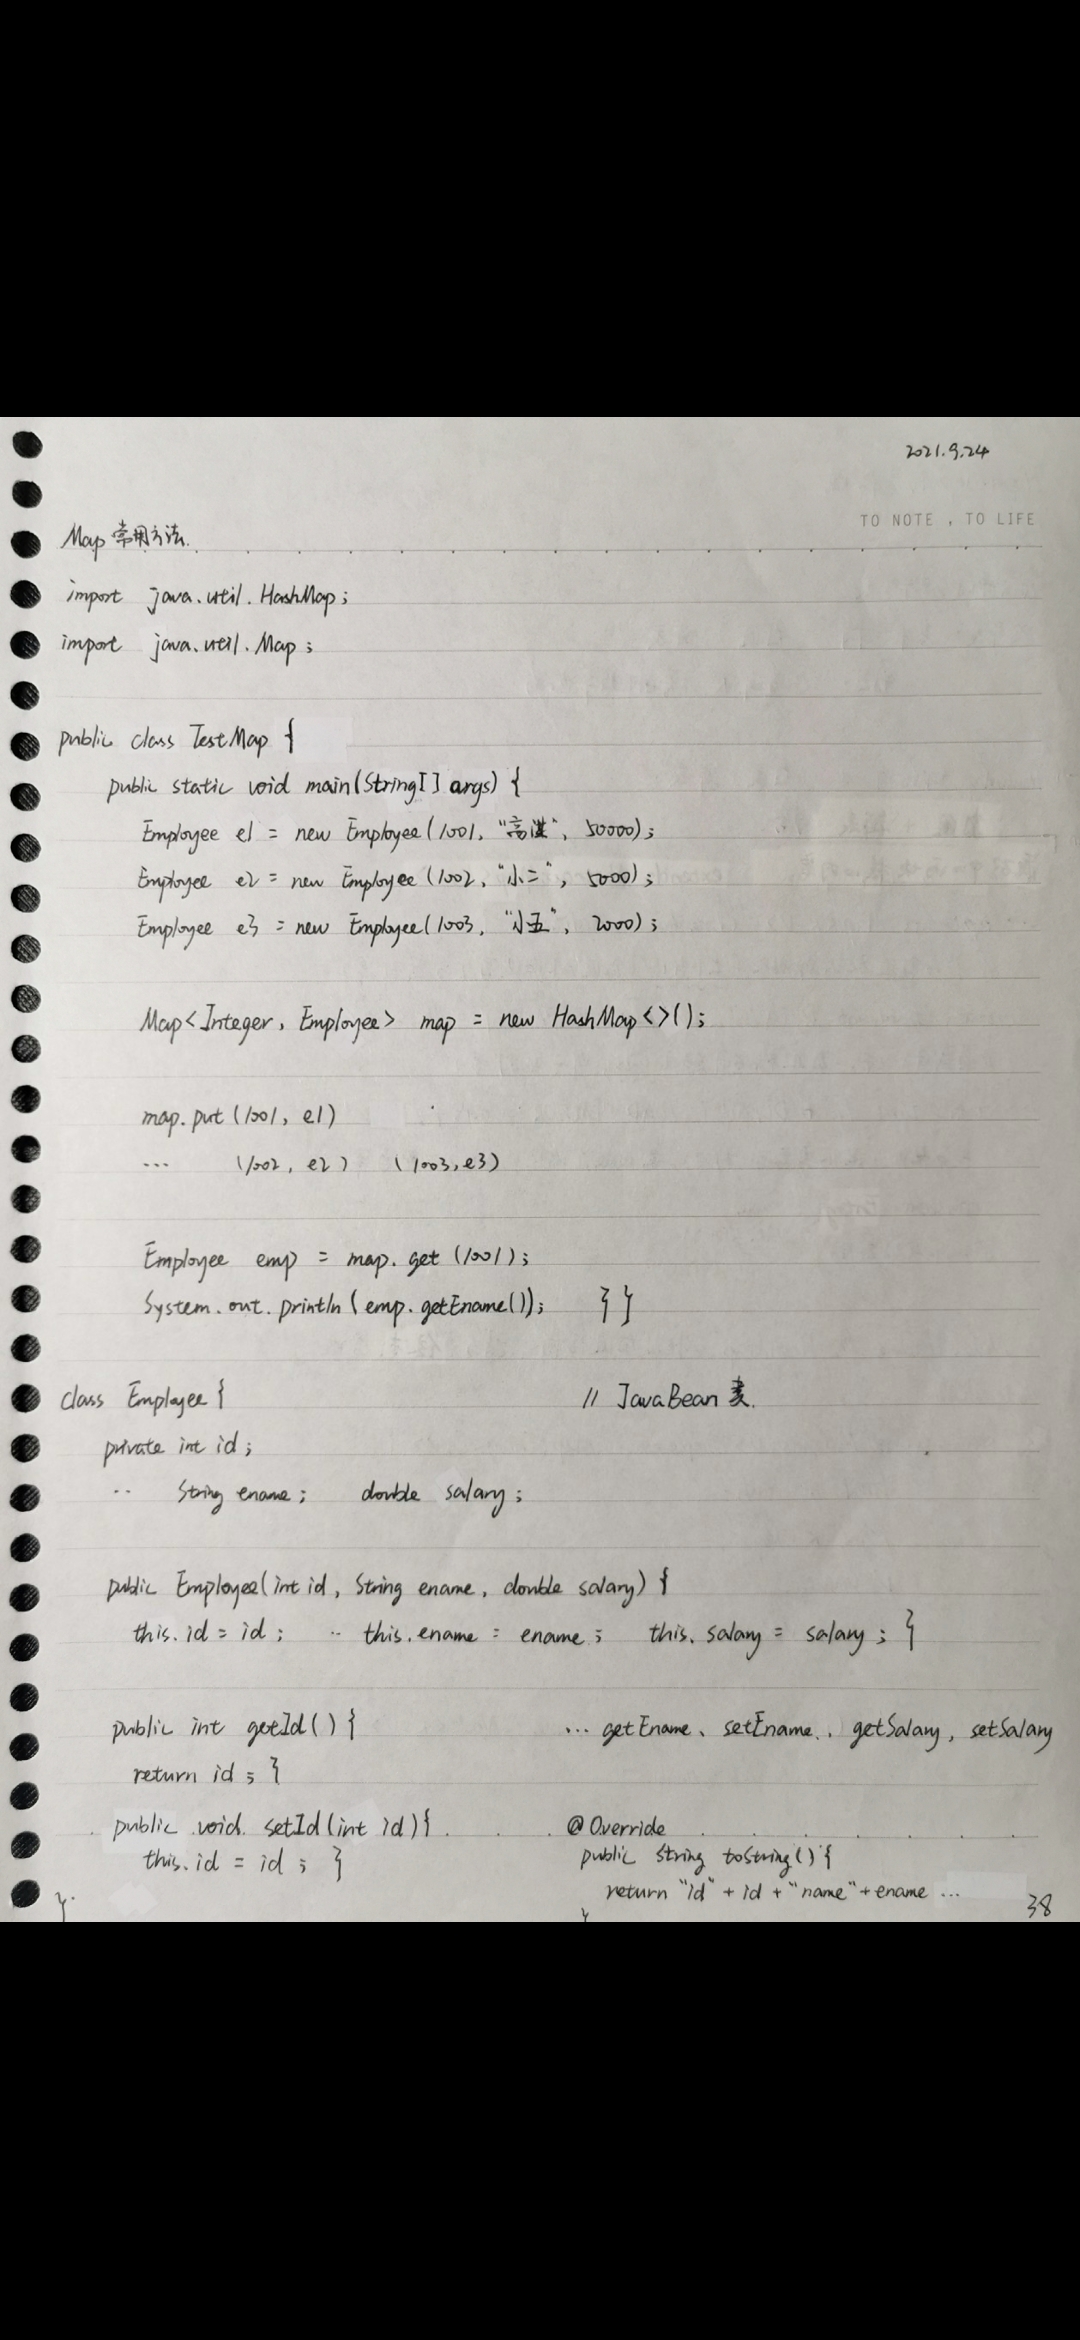 2021.9.24
TO NOTE , TO LIFE
Map 常用方法.
import java.util.HashMap;
import java.util.Map;
public class TestMap {
public static void main(String[] args) {
Employee e1 = new Employee(1001, "高淇", 50000);
Employee e2 = new Employee(1002, "小二", 5000);
Employee e3 = new Employee(1003, "小五", 2000);
Map<Integer, Employee> map = new HashMap<>();
map.put(1001, e1)
... (1002, e2) (1003, e3)
Employee emp = map.get(1001);
System.out.println(emp.getEname()); }}
class Employee { // JavaBean 类.
private int id;
.. String ename; double salary;
public Employee(int id, String ename, double salary) {
this.id = id; .. this.ename = ename; this.salary = salary; }
public int getId() { ... getEname、setEname., getSalary, setSalary
return id; }
public void setId(int id){ @Override
this.id = id; } public String toString() {
return "id" + id + "name" + ename ...
} }
38